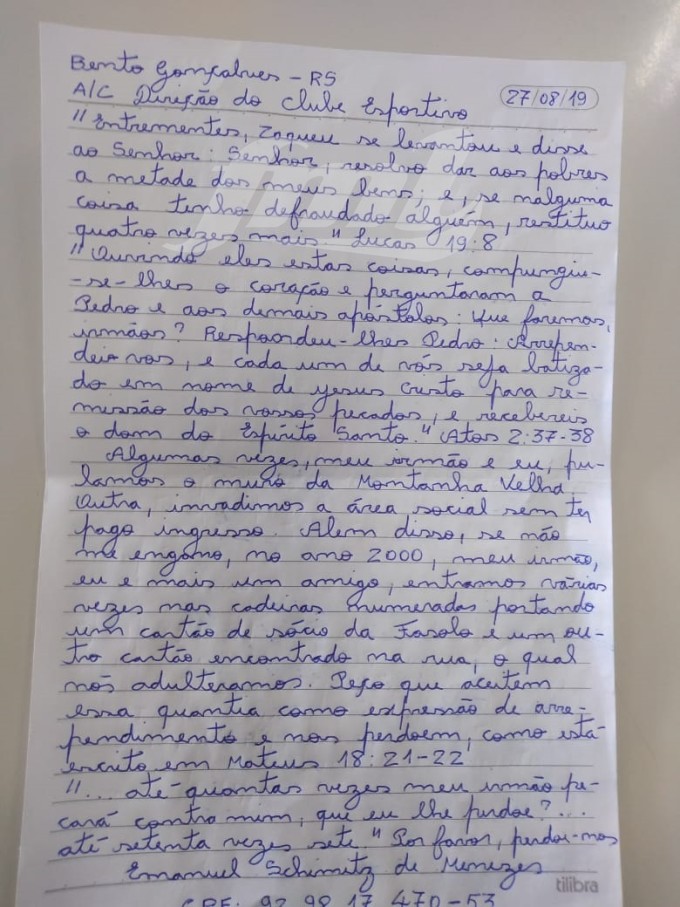 Bento Gonçalves - RS
A/C Direção do Clube Esportivo
27/08/19
"Entrementes, Zaqueu se levantou e disse
ao Senhor: Senhor, resolvo dar aos pobres
a metade dos meus bens; e, se nalguma
coisa tenho defraudado alguém, restituo
quatro vezes mais." Lucas 19:8
"Ouvindo eles estas coisas, compungiu-
-se-lhes o coração e perguntaram a
Pedro e aos demais apóstolos: Que faremos,
irmãos? Respondeu-lhes Pedro: Arrepen-
dei-vos, e cada um de vós seja batiza-
do em nome de Jesus Cristo para re-
missão dos vossos pecados, e recebereis
o dom do Espírito Santo." Atos 2:37-38
Algumas vezes, meu irmão e eu, pu-
lamos o muro da Montanha Velha.
Outra, invadimos a área social sem ter
pago ingresso. Alem disso, se não
me engano, no ano 2000, meu irmão,
eu e mais um amigo, entramos várias
vezes nas cadeiras numeradas portando
um cartão de sócio da Fasolo e um ou-
tro cartão encontrado na rua, o qual
nós adulteramos. Peço que aceitem
essa quantia como expressão de arre-
pendimento e nos perdoem, como está
escrito em Mateus 18:21-22
"... até quantas vezes meu irmão pe-
cará contra mim, que eu lhe perdoe?...
até setenta vezes sete." Por favor, perdoe-nos
Emanuel Schimitz de Menezes
tilibra